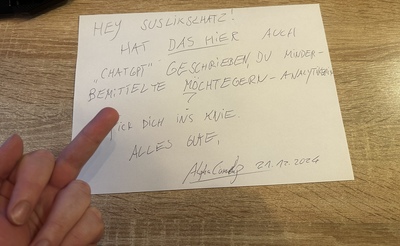 HEY SUSLIKSCHATZ!
HAT DAS HIER AUCH
"CHATGPT" GESCHRIEBEN, DU MINDER-
BEMITTELTE MÖCHTEGERN-ANALYTIKERIN
?
DICH INS KNIE.
ALLES GUTE,
21.12.2024